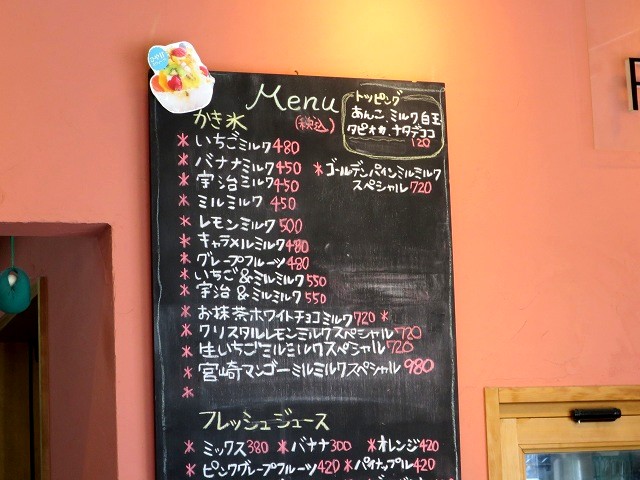 Menu
かき氷
(税込)
トッピング
あんこ、ミルク白玉
タピオカ、ナタデココ
120
*いちごミルク480
*バナナミルク450
*宇治ミルク450
*ミルミルク 450
*ゴールデンパインミルミルク
スペシャル720
*レモンミルク 500
*キャラメルミルク480
*グレープフルーツ480
*いちご&ミルミルク550
*宇治&ミルミルク550
*お抹茶ホワイトチョコミルク720*
*クリスタルレモンミルクスペシャル720
*生いちごミルミルクスペシャル720
*宮崎マンゴーミルミルクスペシャル980
*
フレッシュジュース
*ミックス380 *バナナ300 *オレンジ420
*ピンクグレープフルーツ420 *パイナップル420